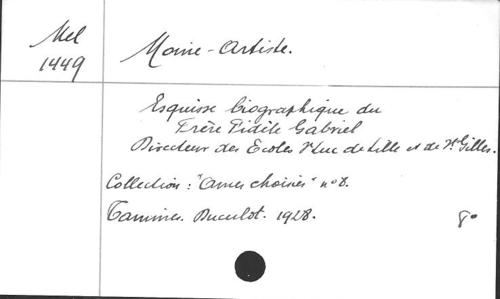 Mel
1449
Moine-Artiste.
Esquisse biographique du
Frère Fidèle Gabriel
Directeur des Ecoles St Luc de Lille et de St Gilles.
Collection: "Ames choisies" n° 8.
Tamines. Duculot. 1928.
8°